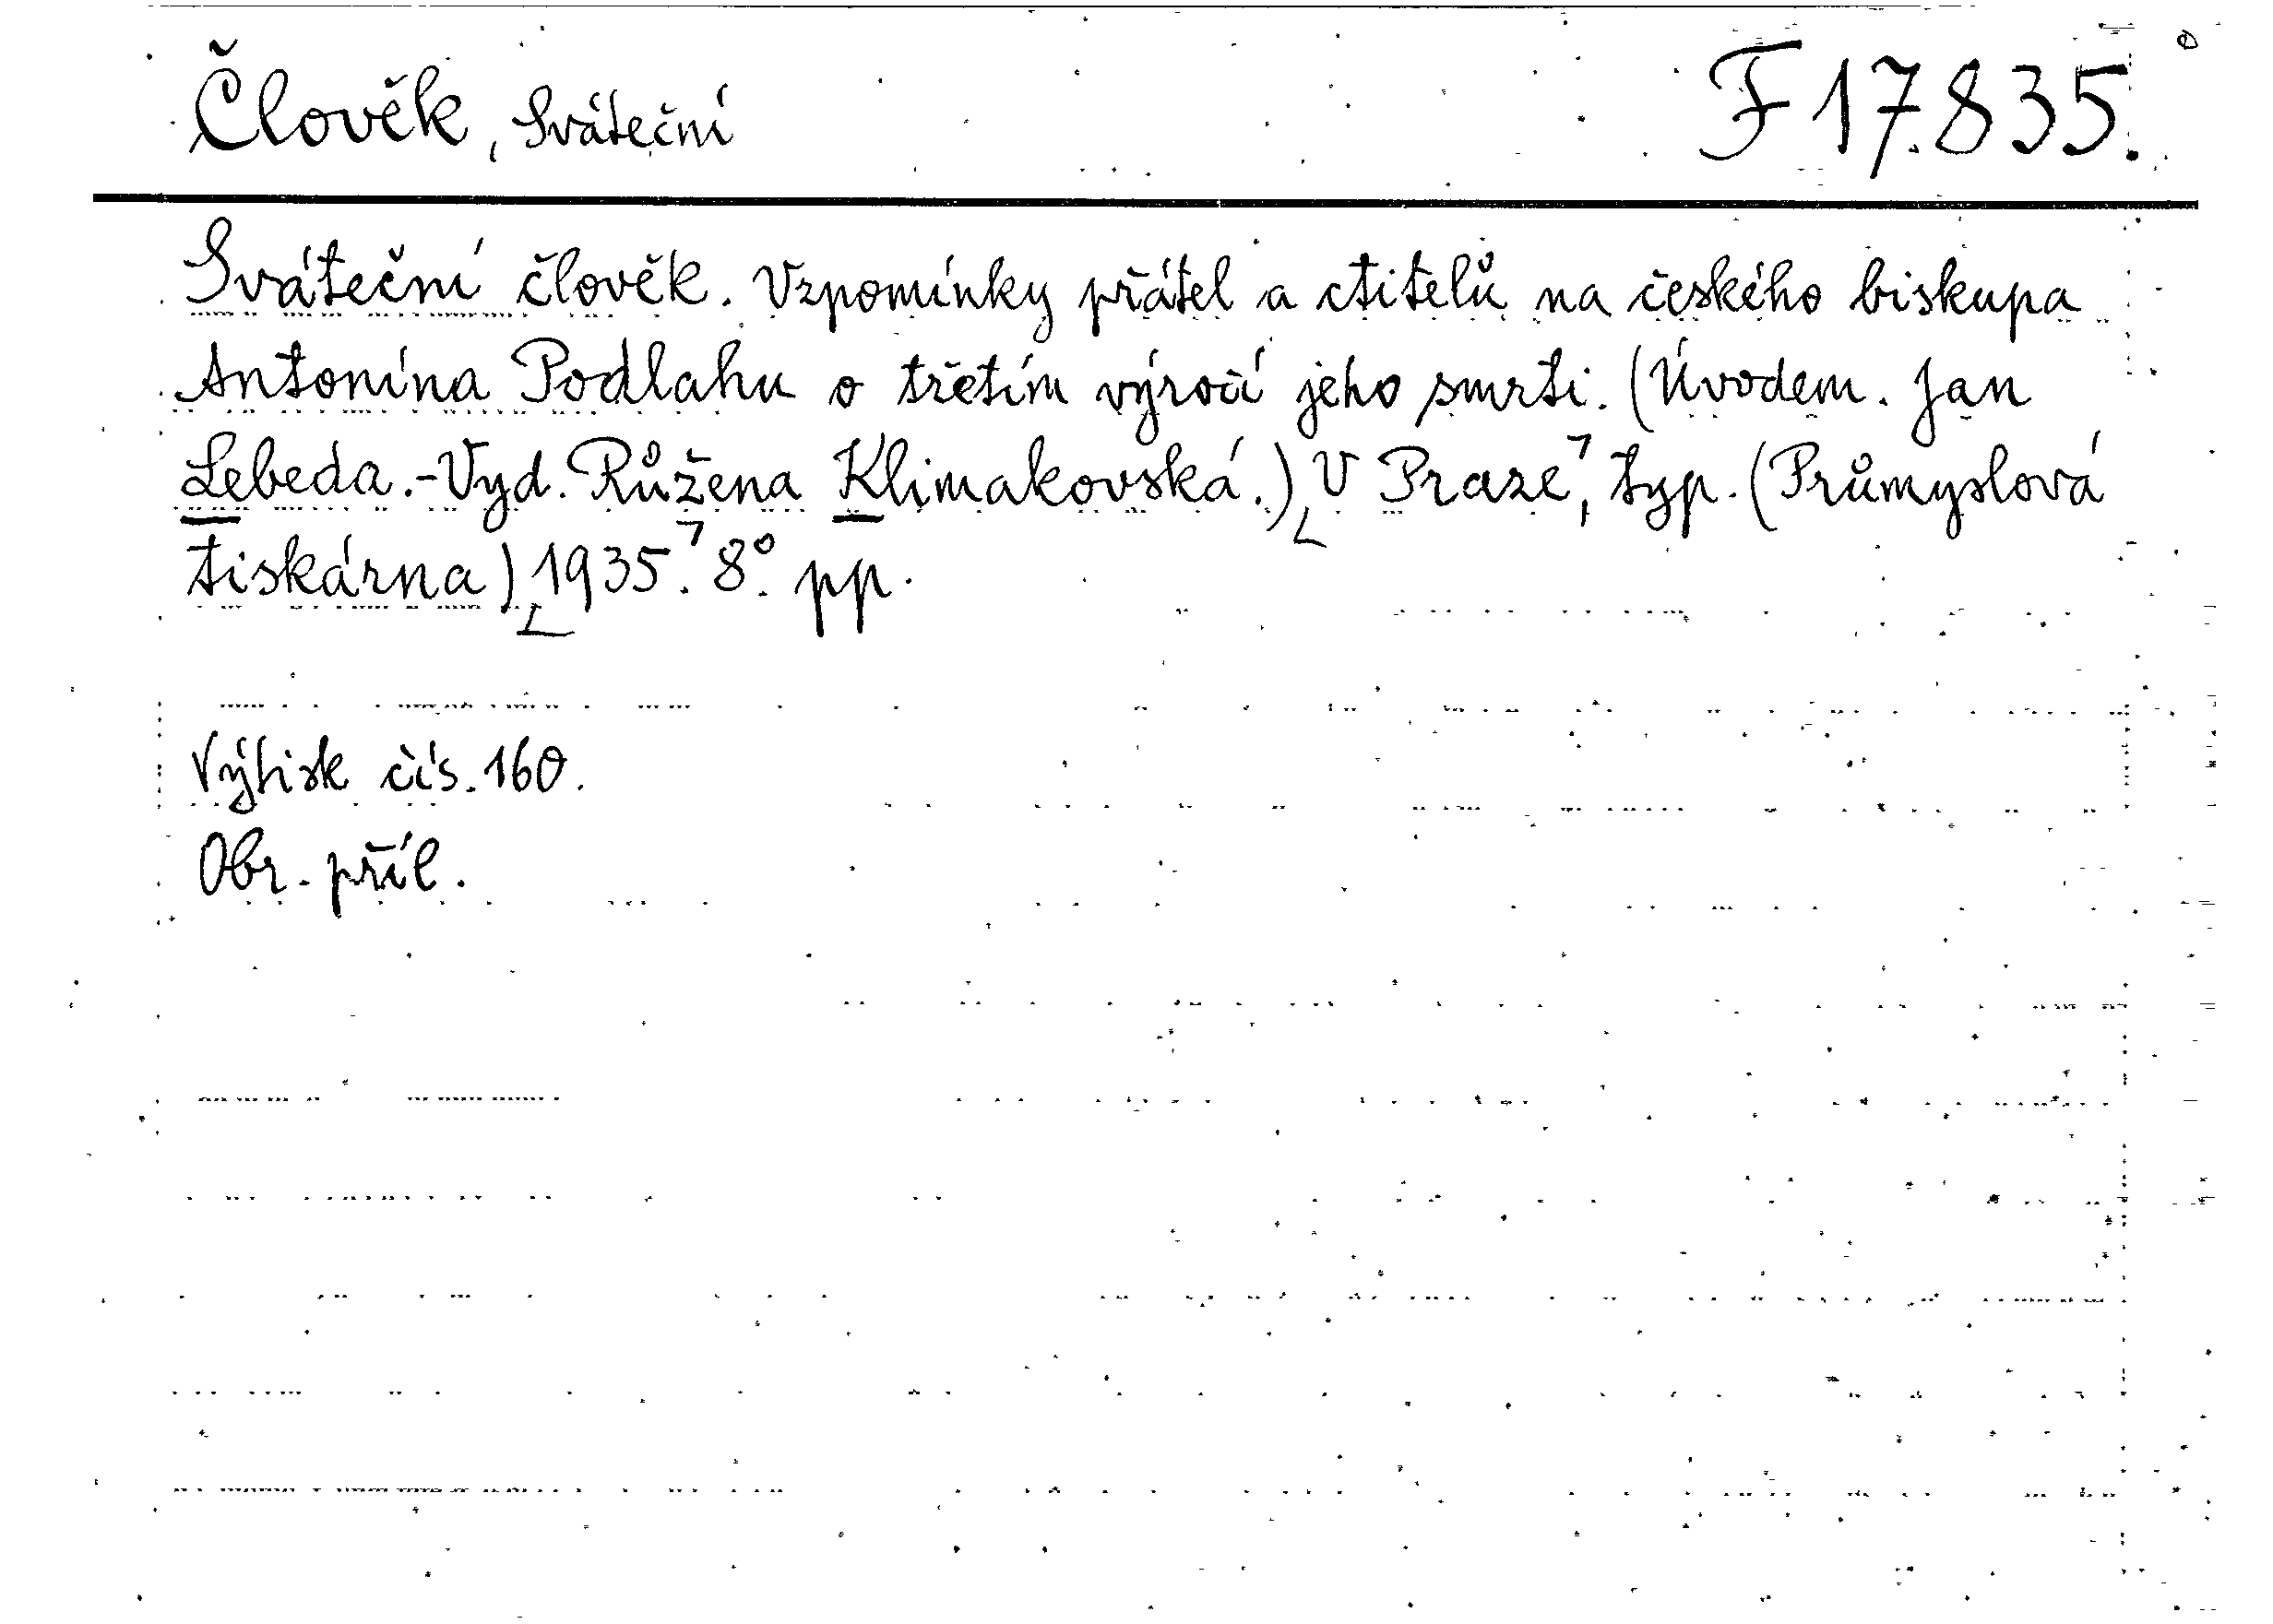 Člověk, Sváteční F 17.835.
Sváteční člověk. Vzpomínky přátel a ctitelů na českého biskupa
Antonína Podlahu o třetím výročí jeho smrti. (Úvodem. Jan
Lebeda.-Vyd. Růžena Klimakovská.) V Praze, typ. (Průmyslová
tiskárna) 1935. 8°. pp.
Výtisk čís. 160.
Obr. příl.